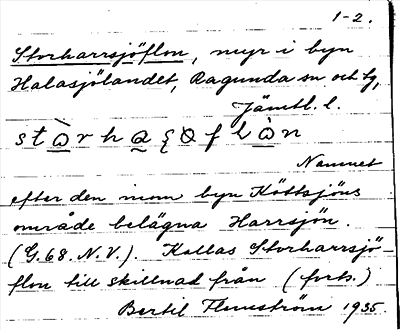 1-2.
Storharrsjöflon, myr i byn
Halasjölandet, Ragunda sn och tg,
Jämtl. l.
Namnet
efter den inom byn Köttsjöns
område belägna Harrsjön.
(G.68. N.V.). Kallas Storharrsjö-
flon till skillnad från (forts.)
Bertil Flemström 1935.